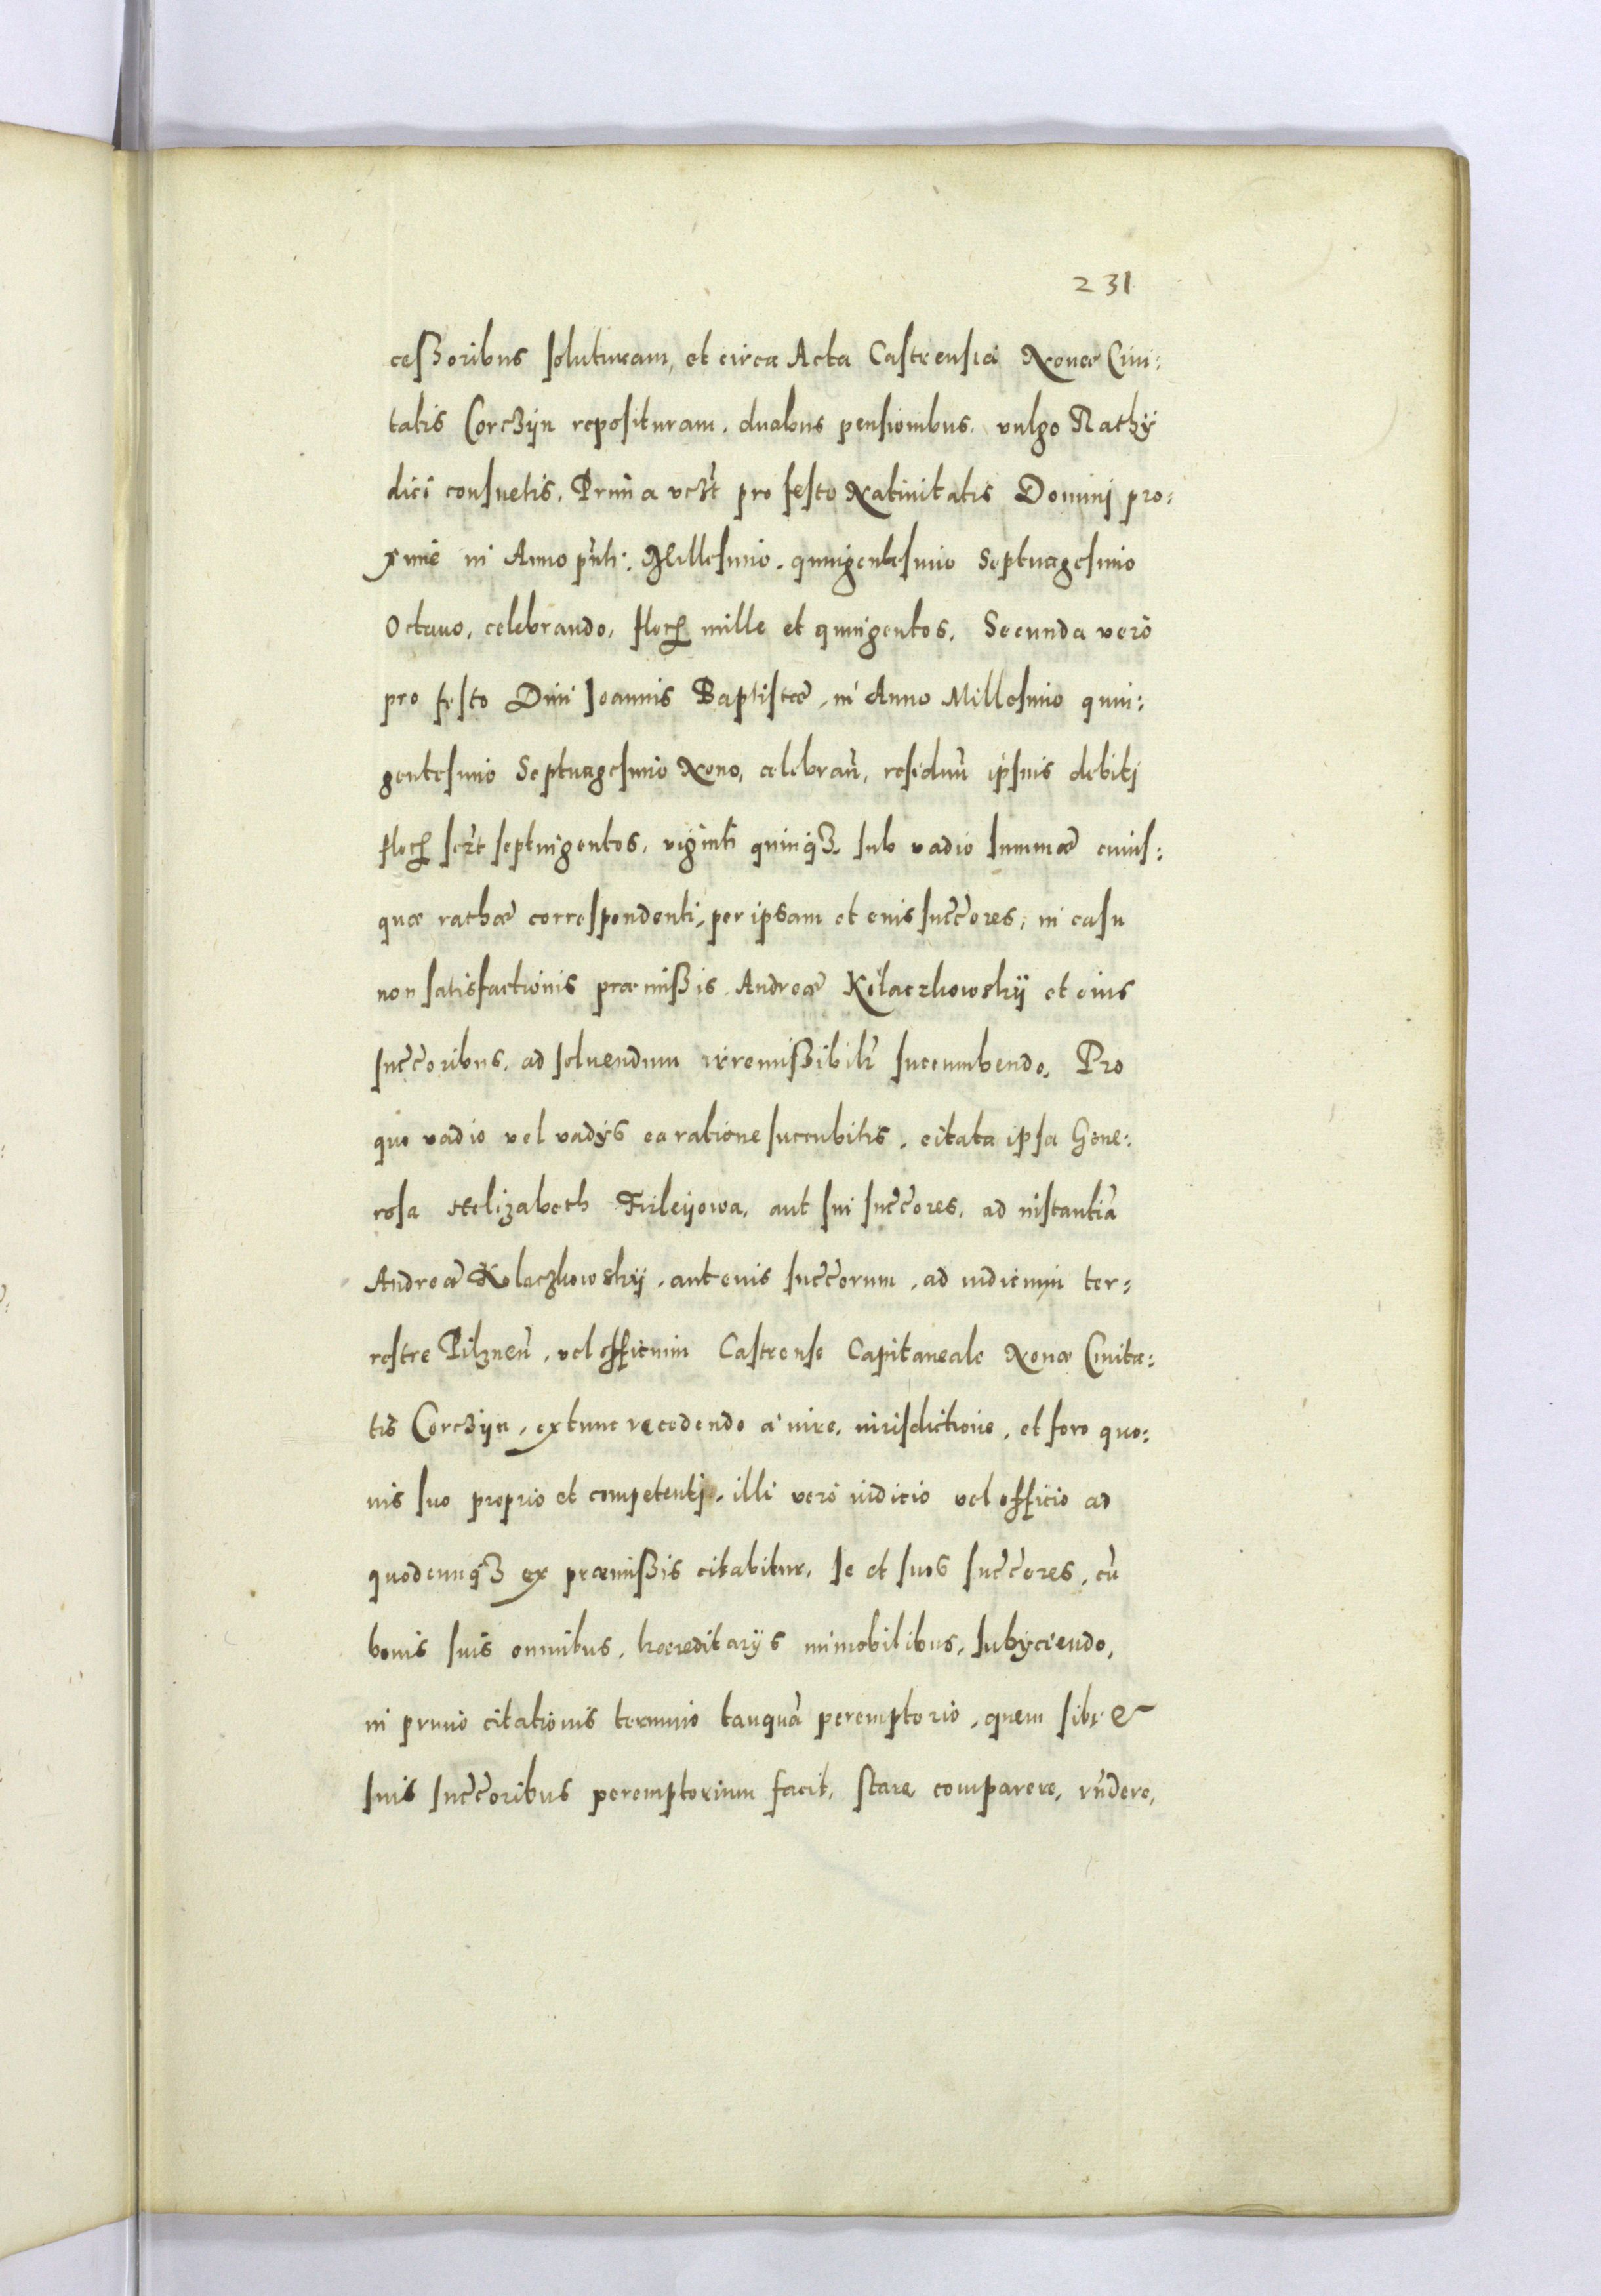 231
ceßoribus soluturam, et circa Acta Castrensia Nouæ Ciui:
tatis Corczÿn reposituram. duabus pensionibus. vulgo Rathÿ
dici consuetis. Prima vczt pro festo Natiuitatis Dominj pro:
xime in Anno pnti: Millesimo. quingentesimo Septuagesimo
Octauo. celebrando, floc mille et quingentos. Secunda verò
pro festo Diui Joannis Baptistæ, in Anno Millesimo quin:
gentesimo Septuagesimo Nono, celebran, residuũ ipsius debitj
floc sczt septingentos. viginti quinqȝ. sub vadio summæ cuius:
que rathæ correspondenti, per ipsam et eius succores, in casu
non satisfactionis præmißis. Andreæ Kolaczkowskÿ et eius
succoribus. ad soluendum irremißibilr succumbendo. Pro
quo vadio vel vadÿs ea ratione succubitis. citata ipsa Gene:
rosa Helizabeth Firleÿowa, aut sui succores, ad instantiã
Andreæ Kolaczkowskÿ. aut eius succorum. ad iudicium ter:
restre Pilznen̄. vel officium Castrense Capitaneale Nouæ Ciuita:
tis Corczÿn, extunc recedendo à iure. iurisdictione, et foro quo:
uis suo proprio et competentj. illi verò iudicio vel officio ad
quodcunqȝ ex præmißis citabitur. se et suos succores, cũ
bonis suis omnibus. hæreditarÿs immobilibus, subÿciendo,
in primo citationis termino tanquã peremptorio, quem sibi &
suis succoribus peremptorium facit. stare comparere, rñdere,